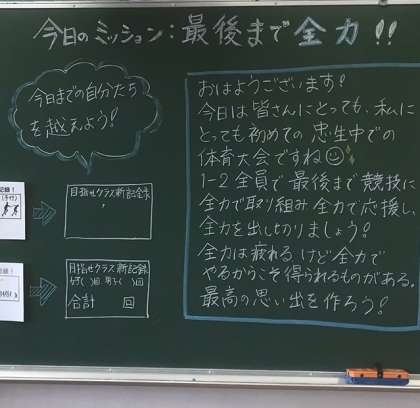 今日のミッション:最後まで全力!!
今日までの自分たち
を越えよう!
おはようございます!
今日は皆さんにとっても、私に
とっても初めての忠生中での
体育大会ですね
1-2全員で最後まで競技に
全力で取り組み全力で応援し
全力を出しきりましょう!
全力は疲れるけど全力で
やるからこそ得られるものがある。
最高の思い出を作ろう!
記録!
目指せクラス新記録
記録!
目指せクラス新記録
合計 回